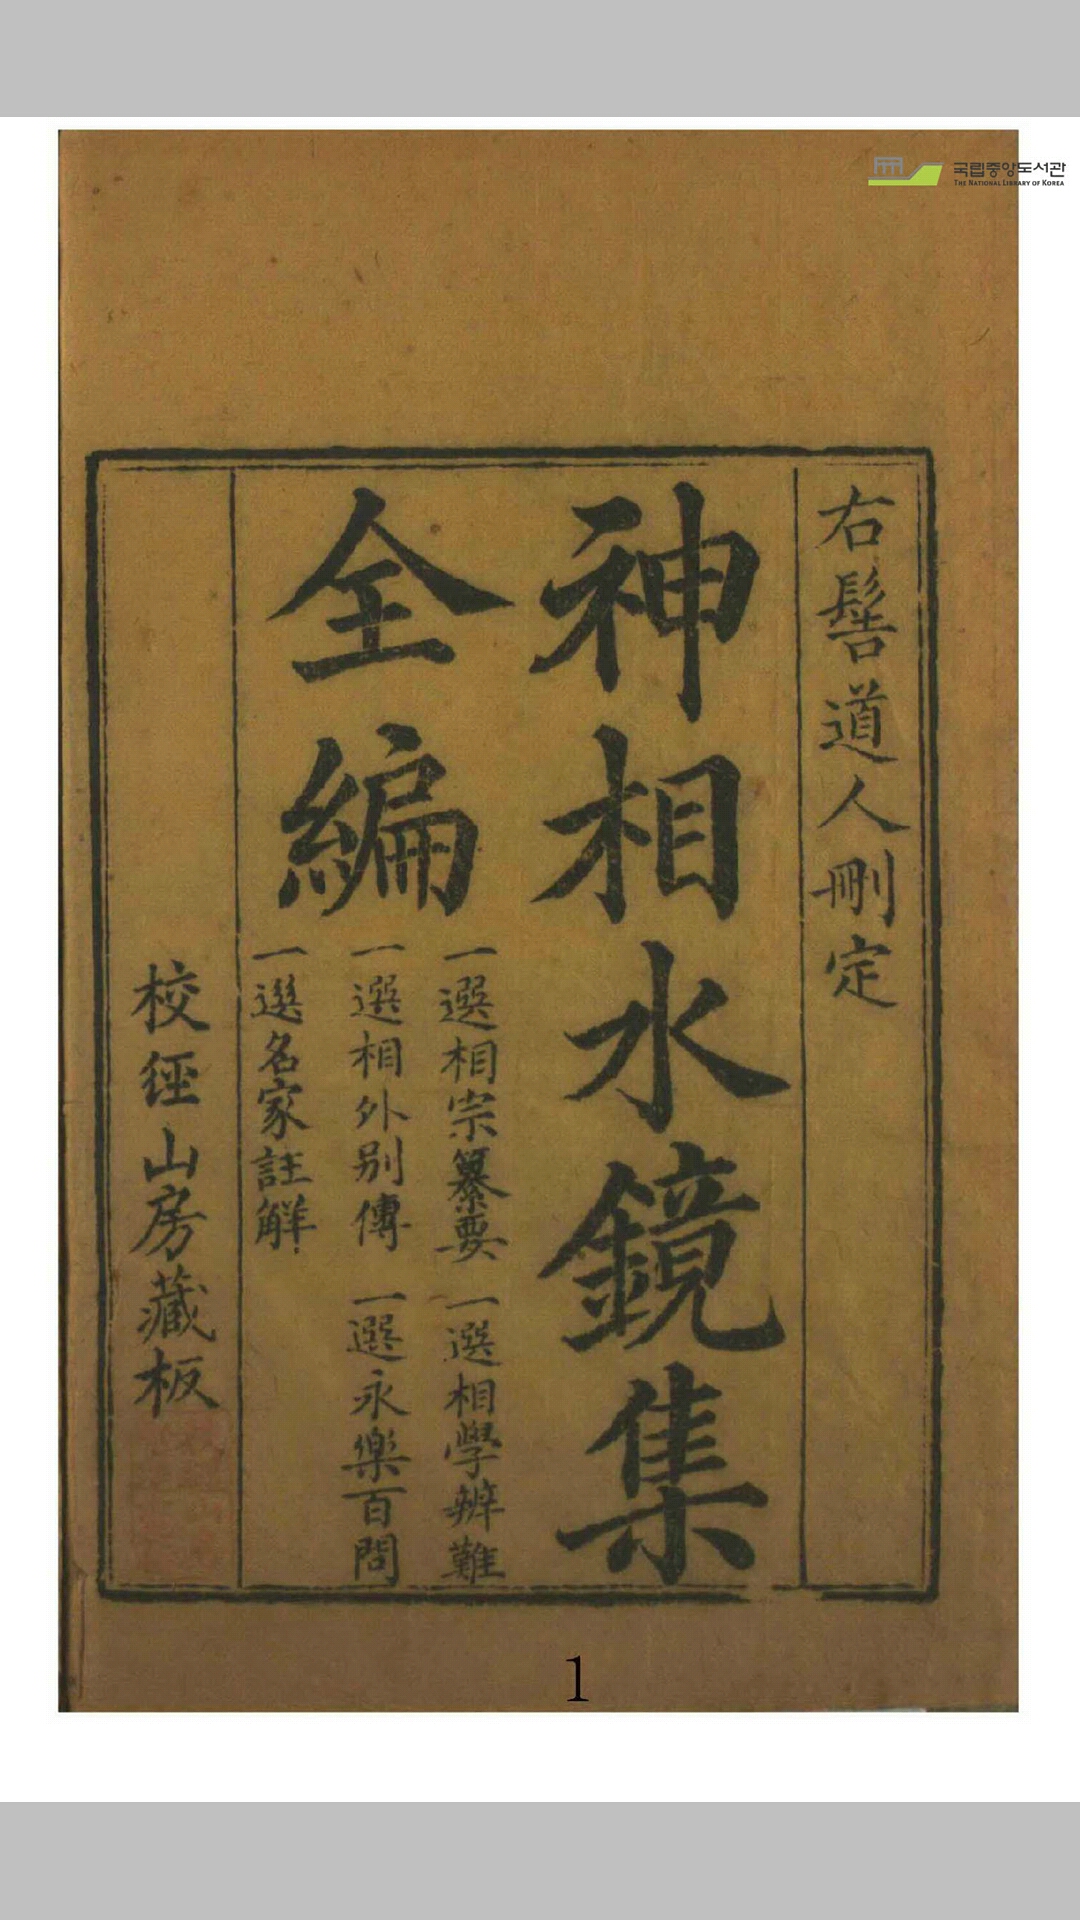 국립중앙도서관
THE NATIONAL LIBRARY OF KOREA
右髻道人刪定
神相水鏡集
全編
一選相宗纂要 一選相學辨難
一選相外別傳 一選永樂百問
一選名家註解
校經山房藏板
1